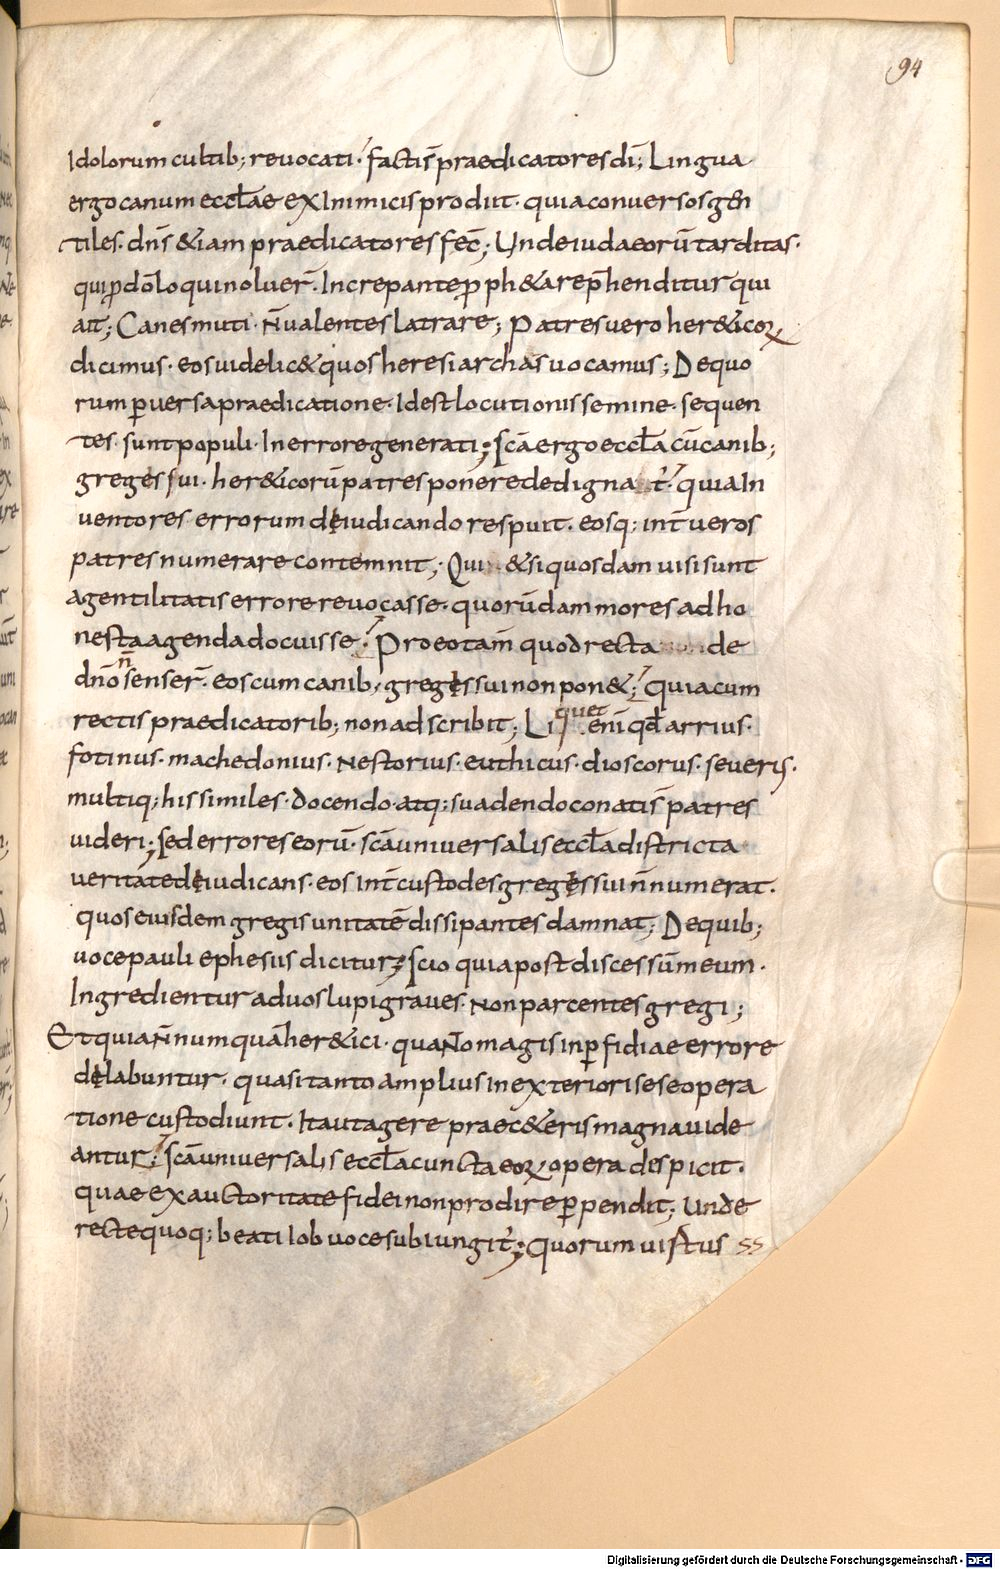 94
Idolorum cultib; reuocati· facti s̄ praedicatores dī; Lingua
ergo canum eccƚae ex Inimicis prodiit· quia conuersos gen
tiles· dn̄s &iam praedicatores fec̄; Unde iudaeorū tarditas·
qui ꝓ dō loqui noluer̄· Increpante ꝓph&a rep̄henditur qui
ait; Canes muti· n̄ ualentes latrare; Patres uero her&icoꝝ
dicimus· eos uidelic& quos heresiarchas uocamus; De quo
rum ꝑuersa praedicatione· Id est locutionis semine· sequen
tes· sunt populi· In errore generati; sc̄a ergo eccƚa cū canib;
greges sui· her&icorū patres ponere dedignat̄· quia In
uentores errorum deiudicando respuit· eosq; int̄ ueros
patres numerare contemnit; Qui &si quosdam uisi sunt
a gentilitatis errore reuocasse· quorūdam mores ad ho
nesta agenda docuisse· Pro eo tam̄ quod recta de
dn̄o n̄ senser̄· eos cum canib, greges sui non pon&; quia cum
rectis praedicatorib; non adscribit; Liquet enī qđ arrius·
fotinus· machedonius· nestorius· euthicus· dioscorus· seueris·
multiq; his similes· docendo· atq; suadendo conati s̄ patres
uideri; sed errores eorū· sc̄a uniuersalis eccƚa districta
ueritate deiudicans· eos int̄ custodes greges sui n̄ numerat·
quos eiusdem gregis unitatē dissipantes damnat; De quib;
uoce pauli ephesus dicitur; Scio quia post discessū meum·
Ingredientur ad uos lupi graues· non parcentes gregi;
Et quia n̄numquā her&ici· quanō magis in ꝑfidiae errore
delabuntur· quasi tanto amplius in exteriori sese opera
tione custodiunt· Ita ut agere prae c&eris magna uide
antur; sc̄a uniuersalis eccƚa cuncta eoꝝ opera despicit·
quae ex auctoritate fidei non prodire ꝑpendit; Unde
recte quoq; beati Iob uoce subiungit̄; quorum uistus ss
Digitalisierung gefördert durch die Deutsche Forschungsgemeinschaft - DFG